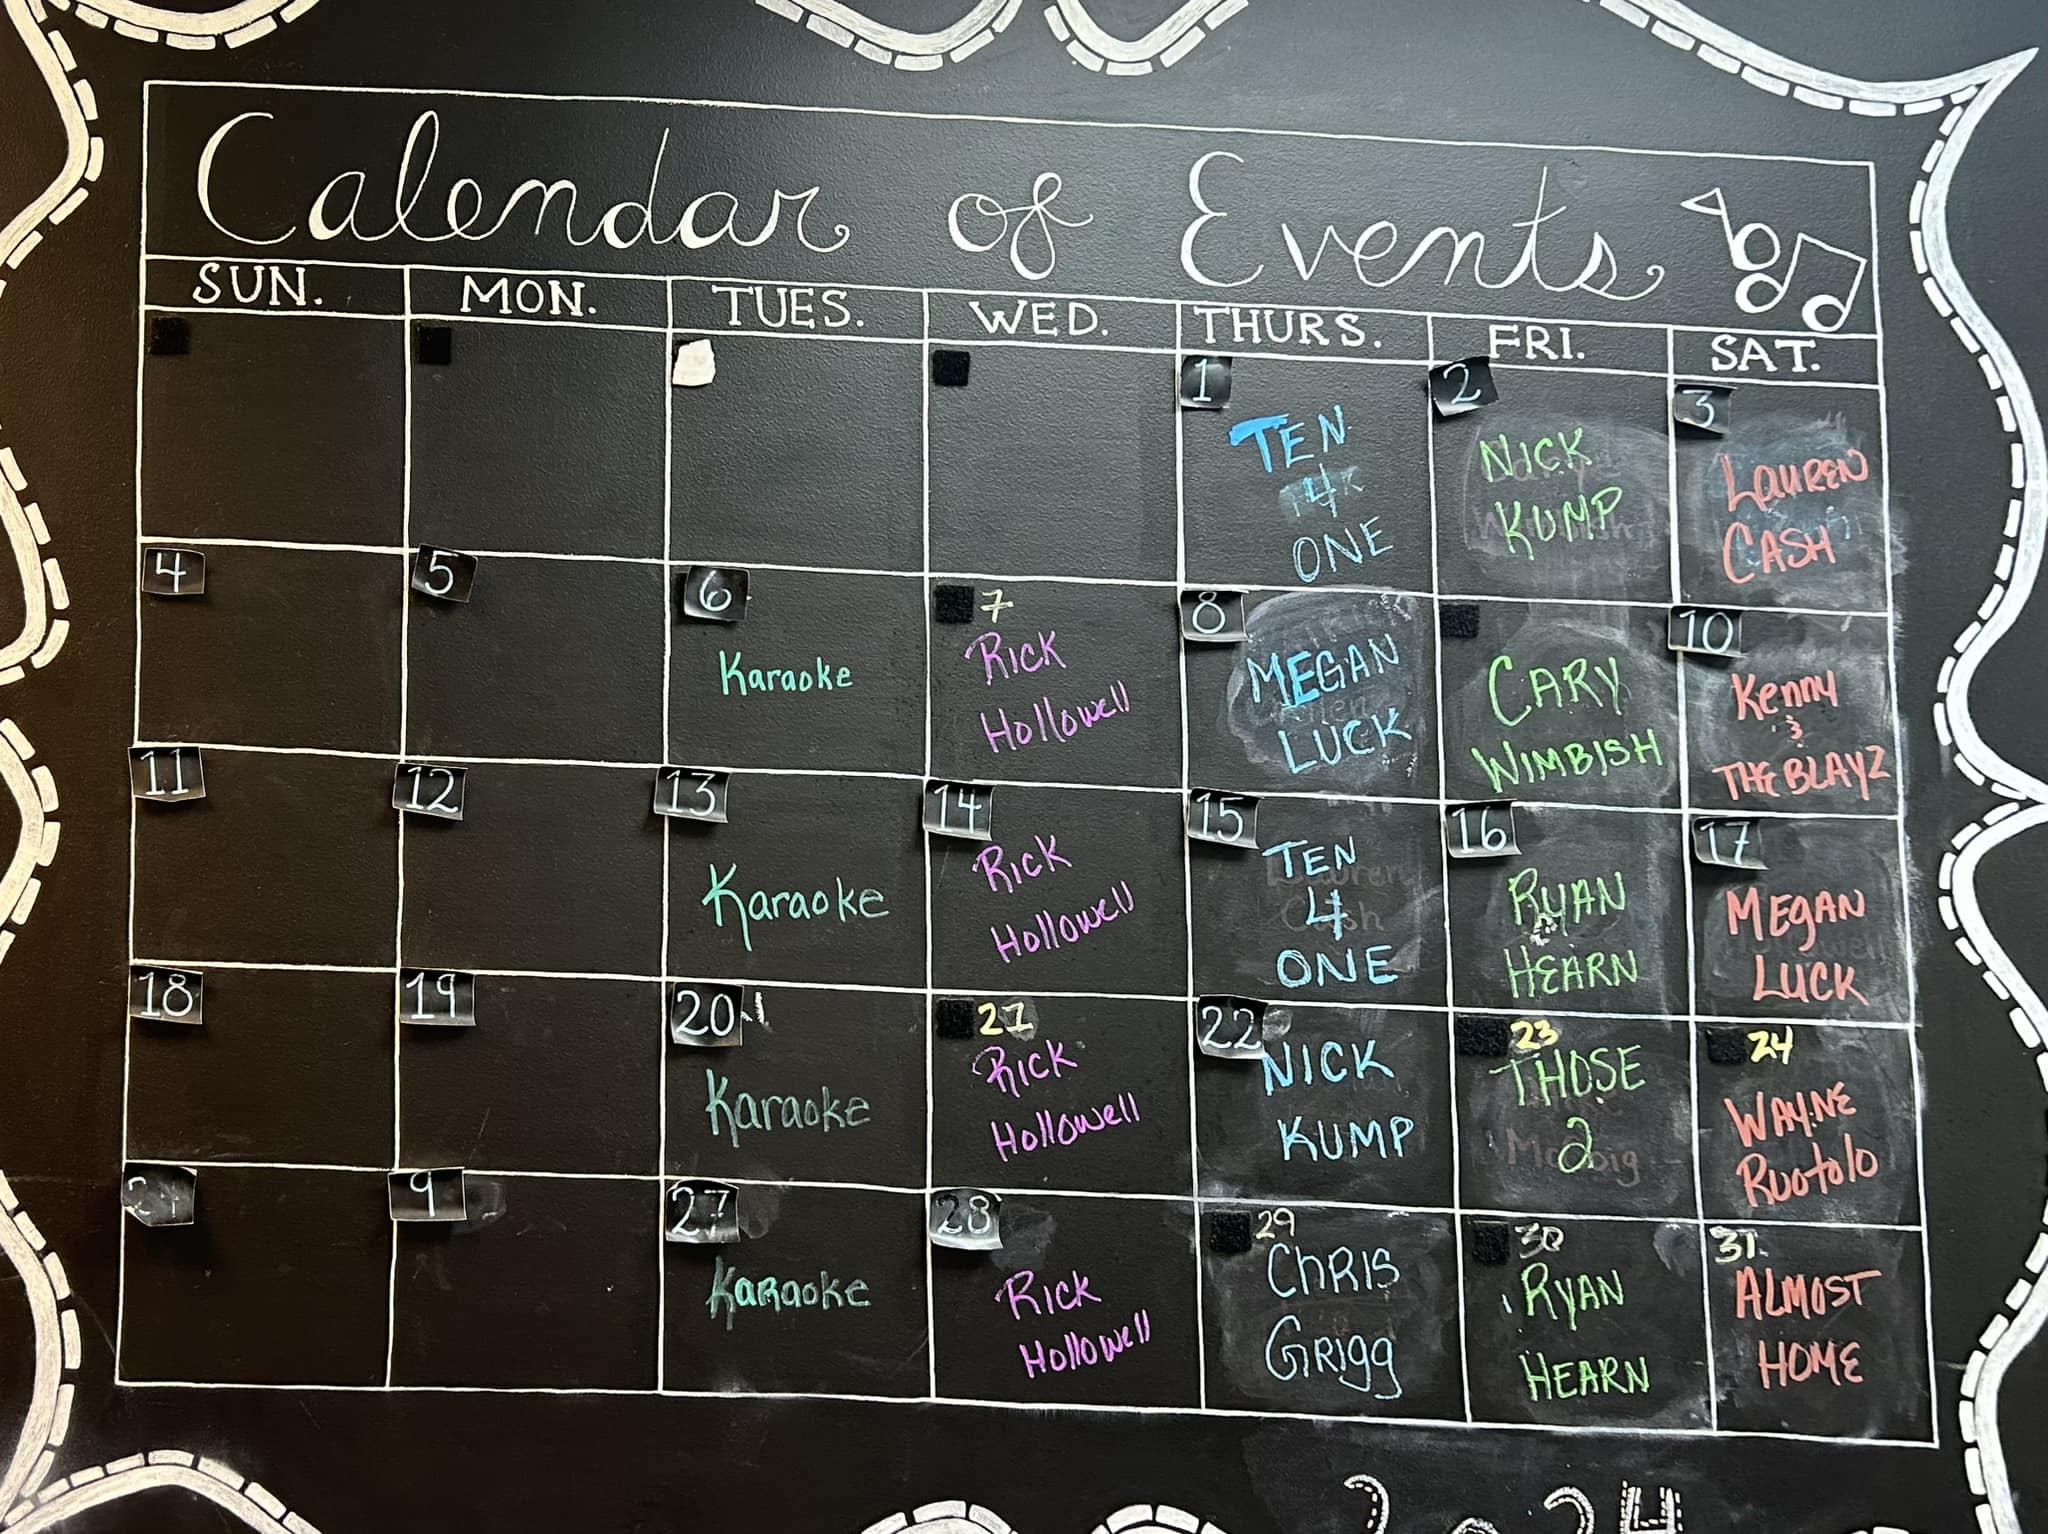 Calendar of Events
SUN. MON. TUES. WED. THURS. FRI. SAT.
1 2 3
TEN
4
ONE
NICK
KUMP
LAUREN
CASH
4 5 6 7 8 10
Karaoke
Rick
Hollowell
MEGAN
LUCK
CARY
WIMBISH
Kenny
&
THE BLAYZ
11 12 13 14 15 16 17
Karaoke
Rick
Hollowell
TEN
4
ONE
RYAN
HEARN
MEGAN
LUCK
18 19 20 21 22 23 24
Karaoke
Rick
Hollowell
NICK
KUMP
THOSE
2
WAYNE
Ruotolo
9 27 28 29 30 31
Karaoke
Rick
Hollowell
CHRIS
GRIGG
RYAN
HEARN
ALMOST
HOME
2024